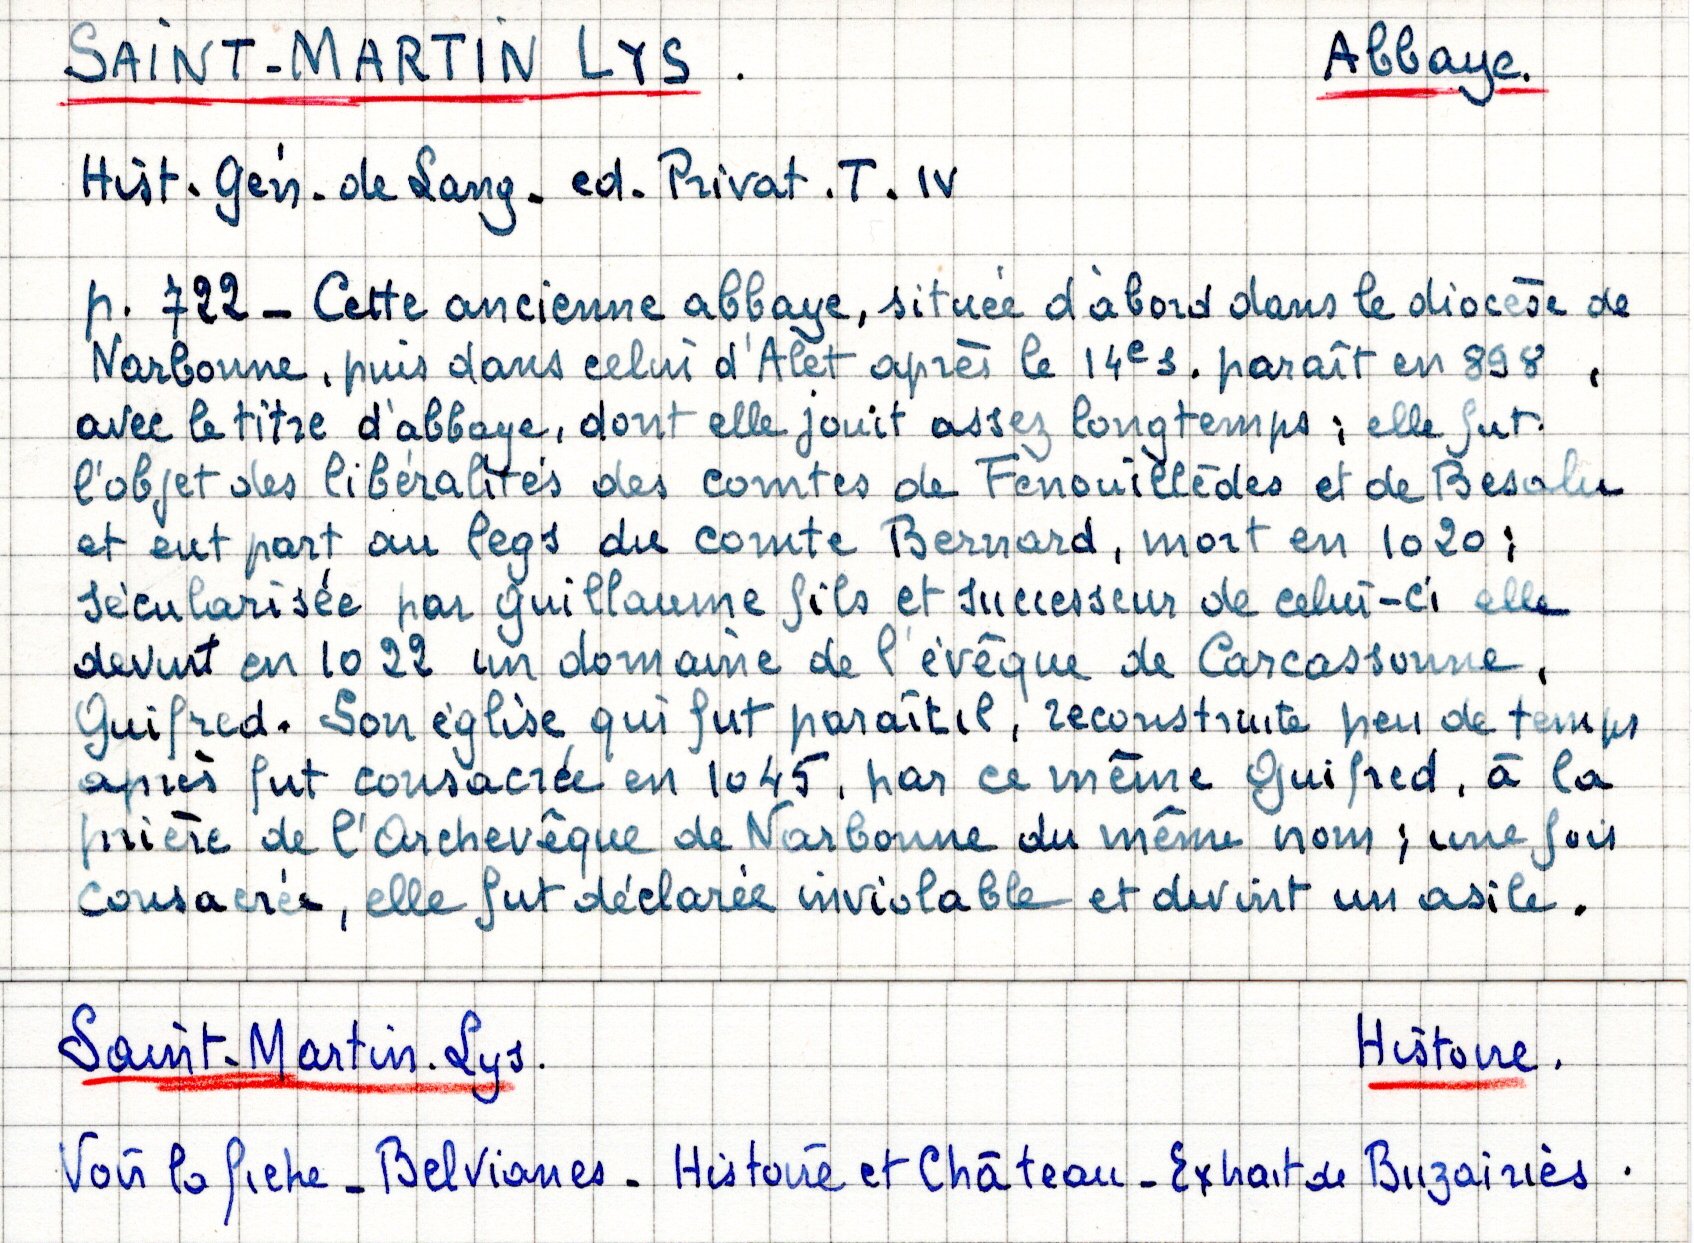 SAINT-MARTIN LYS. Abbaye.
Hist. Gén. de Lang. ed. Privat. T. IV
p. 722 - Cette ancienne abbaye, située d'abord dans le diocèse de
Narbonne, puis dans celui d'Alet après le 14e s. paraît en 898,
avec le titre d'abbaye, dont elle jouit assez longtemps; elle fut
l'objet des libéralités des comtes de Fenouillèdes et de Besalu
et eut part au legs du comte Bernard, mort en 1020;
sécularisée par Guillaume fils et successeur de celui-ci elle
devint en 1022 un domaine de l'évêque de Carcassonne,
Guifred. Son église qui fut paraîtil, reconstruite peu de temps
après fut consacrée en 1045, par ce même Guifred, à la
prière de l'Archevêque de Narbonne du même nom; une fois
consacrée, elle fut déclarée inviolable et devint un asile.
Saint-Martin-Lys. Histoire.
Voir la fiche - Belvianes - Histoire et Château - Extrait de Buzairiès.